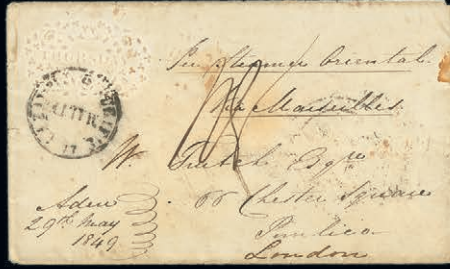 Per Steamer Oriental
Via Marseilles
W. Esqre
66 Chester Square
Pimlico
London
Aden
29th May
1849